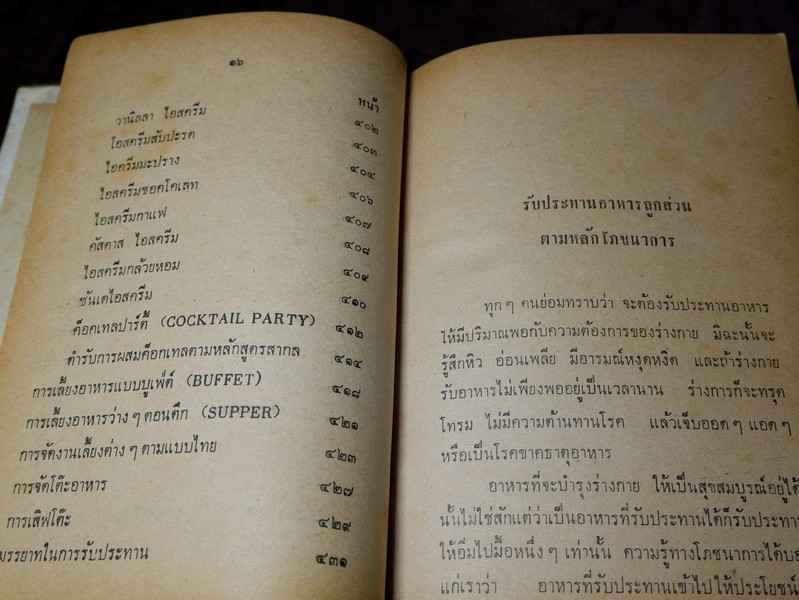 ๑๖
หน้า
วานิลลา ไอสครีม ๔๐๒
โอสครีมสับปะรด ๔๐๓
ไอครีมมะปราง ๔๐๔
ไอสครีมชอคโคเลท ๔๐๖
ไอสครีมกาแฟ ๔๐๗
คัสตาส ไอสครีม ๔๐๘
ไอสครีมกล้วยหอม ๔๐๙
ซันเดไอสครีม ๔๑๐
ค็อคเทลปาร์ตี้ (COCKTAIL PARTY) ๔๑๒
ตำรับการผสมค็อกเทลตามหลักสูตรสากล ๔๑๔
การเลี้ยงอาหารแบบบูเฟ่ต์ (BUFFET) ๔๑๘
การเลี้ยงอาหารว่าง ๆ ตอนดึก (SUPPER) ๔๒๑
การจัดงานเลี้ยงต่าง ๆ ตามแบบไทย ๔๒๓
การจัดโต๊ะอาหาร ๔๒๗
การเสิฟโต๊ะ ๔๒๙
มรรยาทในการรับประทาน ๔๓๑
รับประทานอาหารถูกส่วน
ตามหลักโภชนาการ
ทุก ๆ คนย่อมทราบว่า จะต้องรับประทานอาหาร
ให้มีปริมาณพอกับความต้องการของร่างกาย มิฉะนั้นจะ
รู้สึกหิว อ่อนเพลีย มีอารมณ์หงุดหงิด และถ้าร่างกาย
รับอาหารไม่เพียงพออยู่เป็นเวลานาน ร่างการก็จะทรุด
โทรม ไม่มีความต้านทานโรค แล้วเจ็บออด ๆ แอด ๆ
หรือเป็นโรคขาดธาตุอาหาร
อาหารที่จะบำรุงร่างกาย ให้เป็นสุขสมบูรณ์อยู่ได้
นั้นไม่ใช่สักแต่ว่าเป็นอาหารที่รับประทานได้ก็รับประทาน
ให้อิ่มไปมื้อหนึ่ง ๆ เท่านั้น ความรู้ทางโภชนาการได้บอ
แก่เราว่า อาหารที่รับประทานเข้าไปให้ประโยชน์